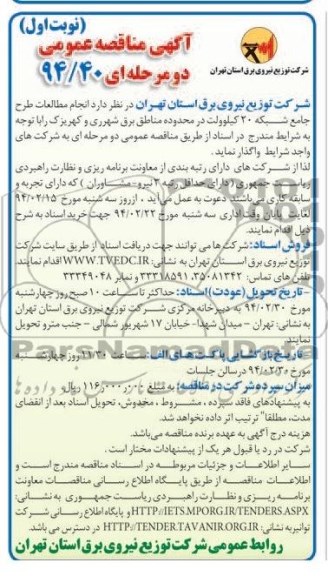 (نوبت اول)
آگهی مناقصه عمومی
دو مرحله ای ۹۴/۴۰
شرکت توزیع نیروی برق استان تهران
شرکت توزیع نیروی برق استان تهران در نظر دارد انجام مطالعات طرح
جامع شبکه ۲۰ کیلوولت در محدوده مناطق برق شهرری و کهریزک را با توجه
به شرایط مندرج در اسناد از طریق مناقصه عمومی دو مرحله ای به شرکت های
واجد شرایط واگذار نماید.
لذا از شرکت های دارای رتبه بندی از معاونت برنامه ریزی و نظارت راهبردی
ریاست جمهوری (دارای حداقل رتبه ۳ نیرو- مشاوران) که دارای تجربه و
سابقه کاری می باشند دعوت به عمل می آید، از روز سه شنبه مورخ ۹۴/۰۲/۱۵
لغایت پایان وقت اداری سه شنبه مورخ ۹۴/۰۲/۲۲ جهت خرید اسناد به شرح
ذیل اقدام نمایند.
فروش اسناد: شرکت ها می توانند جهت دریافت اسناد از طریق سایت شرکت
توزیع نیروی برق استان تهران به نشانی: WWW.TVEDC.IR اقدام نمایند.
تلفن های تماس: ۳۵۰۸۱۳۴۲، ۳۳۳۱۸۵۹۱ و نمابر ۳۳۳۴۹۰۴۸
- تاریخ تحویل (عودت) اسناد: حداکثر تا ساعت ۱۰ صبح روز چهارشنبه
مورخ ۹۴/۰۲/۳۰ به دبیرخانه مرکزی شرکت توزیع نیروی برق استان تهران
به نشانی: تهران - میدان شهدا- خیابان ۱۷ شهریور شمالی - جنب مترو تحویل
نمایند.
- تاریخ بازگشایی پاکت های الف: ساعت ۱۱/۳۰ روز چهارشنبه
مورخ ۹۴/۰۲/۳۰ در سالن جلسات
میزان سپرده شرکت در مناقصه: به مبلغ ۱۱۶٫۰۰۰٫۰۰۰ ریال
به پیشنهادهای فاقد سپرده، مشروط، مخدوش، تحویل اسناد بعد از انقضای
مدت، مطلقا" ترتیب اثر داده نخواهد شد.
هزینه درج آگهی به عهده برنده مناقصه می باشد.
شرکت در رد یا قبول هر یک از پیشنهادات مختار است.
سایر اطلاعات و جزئیات مربوطه در اسناد مناقصه مندرج است و
اطلاعات مناقصه از طریق پایگاه اطلاع رسانی مناقصات معاونت
برنامه ریزی و نظارت راهبردی ریاست جمهوری به نشانی:
HTTP://IETS.MPORG.IR/TENDERS.ASPX و پایگاه اطلاع رسانی شرکت
توانیر به نشانی: HTTP://TENDER.TAVANIR.ORG.IR در دسترس می باشد.
روابط عمومی شرکت توزیع نیروی برق استان تهران